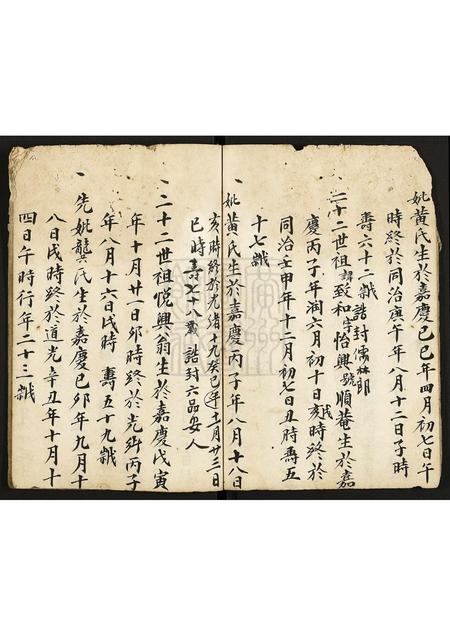 妣黃氏生於嘉慶己巳年四月初七日午
時終於同治庚午年八月十二日子時
壽六十二歲誥封儒林郎
二十二世祖諱致和字怡興號順菴生於嘉
慶丙子年潤六月初十日亥時終於
同治壬甲年十二月初七日丑時壽五
十七歲
妣黃氏生於嘉慶丙子年八月十八日
亥時終於光緒十九癸巳年十二月廿三日
巳時壽七十八歲誥封六品安人
二十二世祖悅興翁生於嘉慶戊寅
年十月廿一日卯時終於光緒丙子
年八月十六日戌時壽五十九歲
先妣龔氏生於嘉慶己卯年九月十
八日戌時終於道光辛丑年十月十
四日午時行年二十三歲